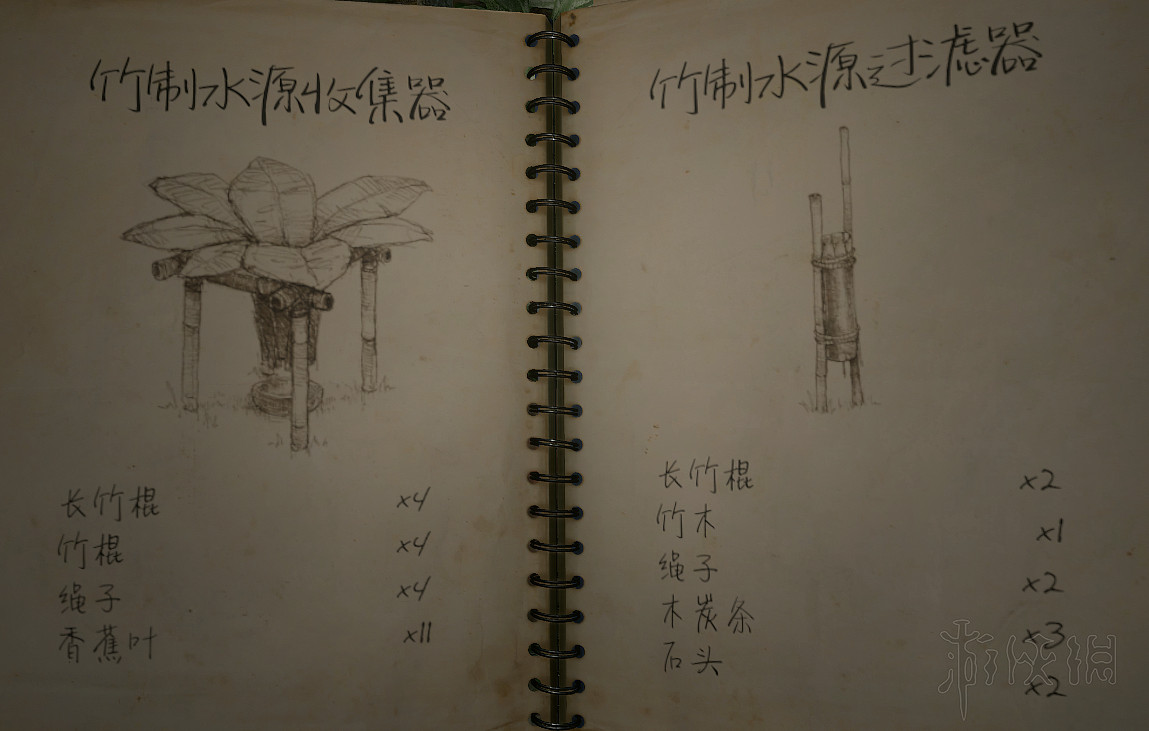 竹制水源收集器
长竹棍 x4
竹棍 x4
绳子 x4
香蕉叶 x11
竹制水源过滤器
长竹棍 x2
竹木 x1
绳子 x2
木炭条 x3
石头 x2
游侠网